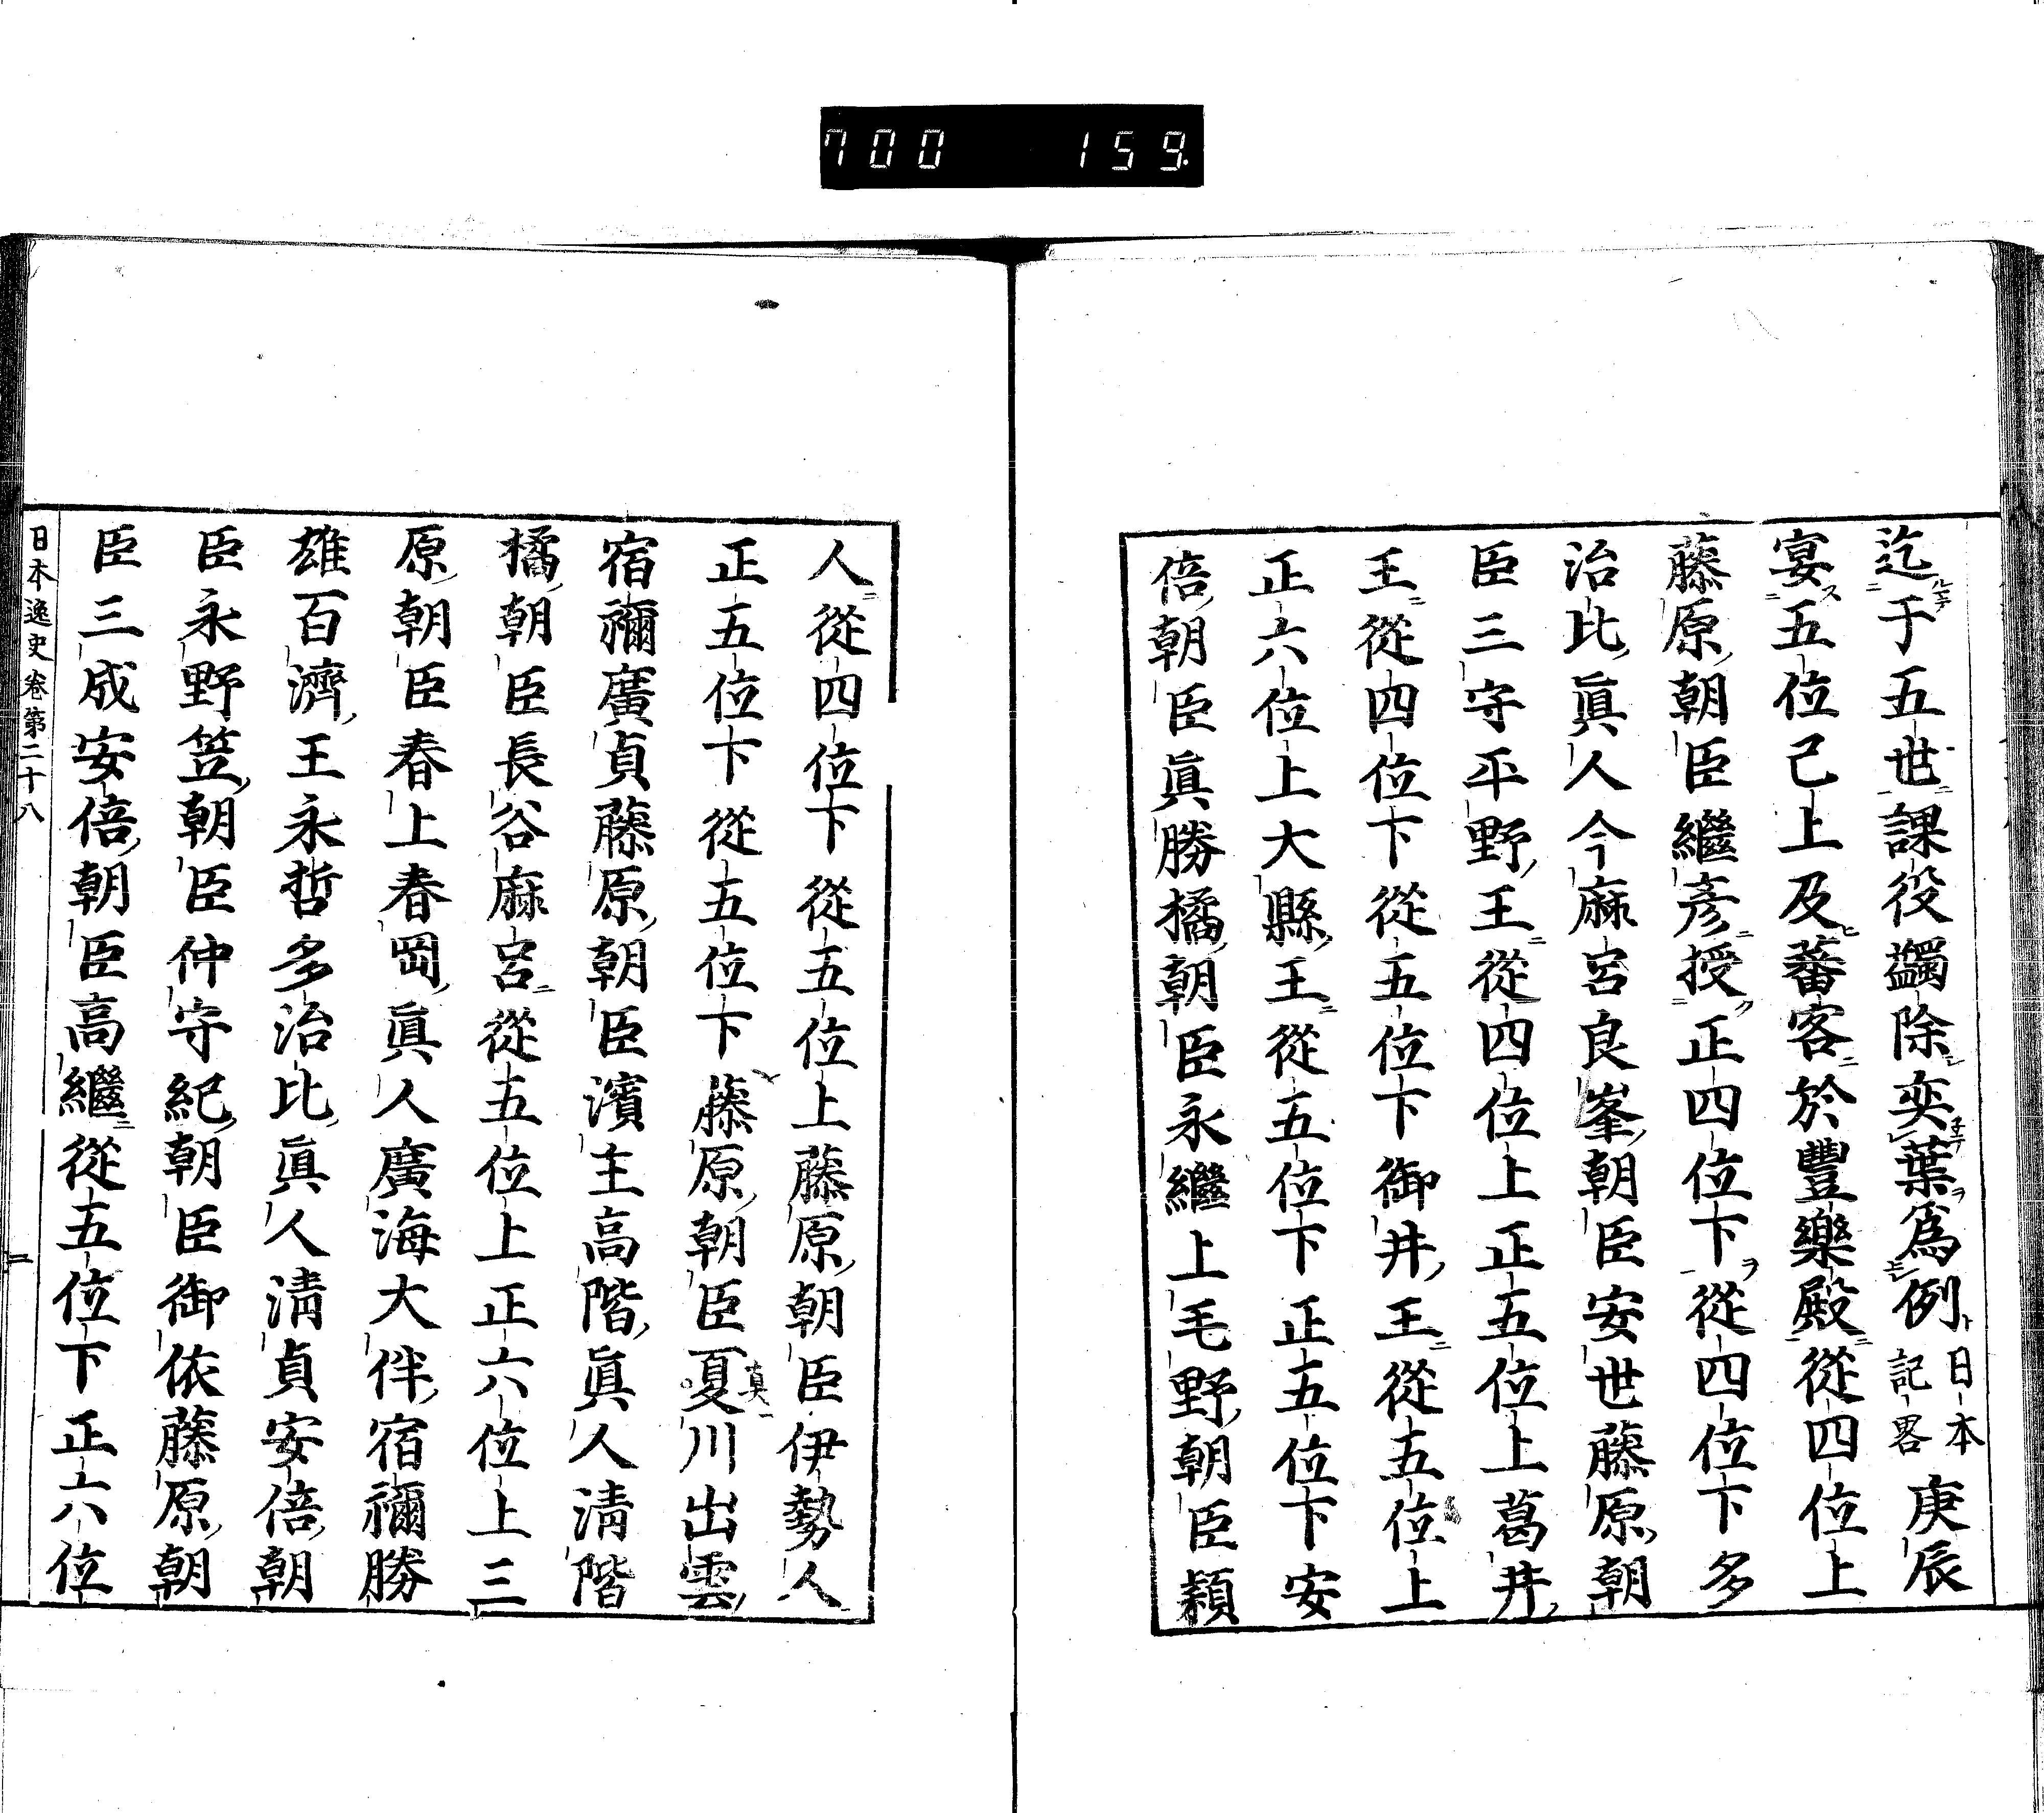 700 159
迄于五世課役蠲除奕葉爲例日本記畧庚辰
宴五位己上及蕃客於豐樂殿從四位上
藤原朝臣繼彥授正四位下從四位下多
治比眞人今麻呂良峯朝臣安世藤原朝
臣三守平野王從四位上正五位上葛井
王從四位下從五位下御井王從五位上
正六位上大縣王從五位下正五位下安
倍朝臣眞勝橘朝臣永繼上毛野朝臣穎
人從四位下從五位上藤原朝臣伊勢人
正五位下從五位下藤原朝臣夏川出雲
眞
宿禰廣貞藤原朝臣濱主高階眞人淸階
橘朝臣長谷麻呂從五位上正六位上三
原朝臣春上春岡眞人廣海大伴宿禰勝
雄百濟王永哲多治比眞人淸貞安倍朝
臣永野笠朝臣仲守紀朝臣御依藤原朝
臣三成安倍朝臣高繼從五位下正六位
日本逸史卷第二十八
二